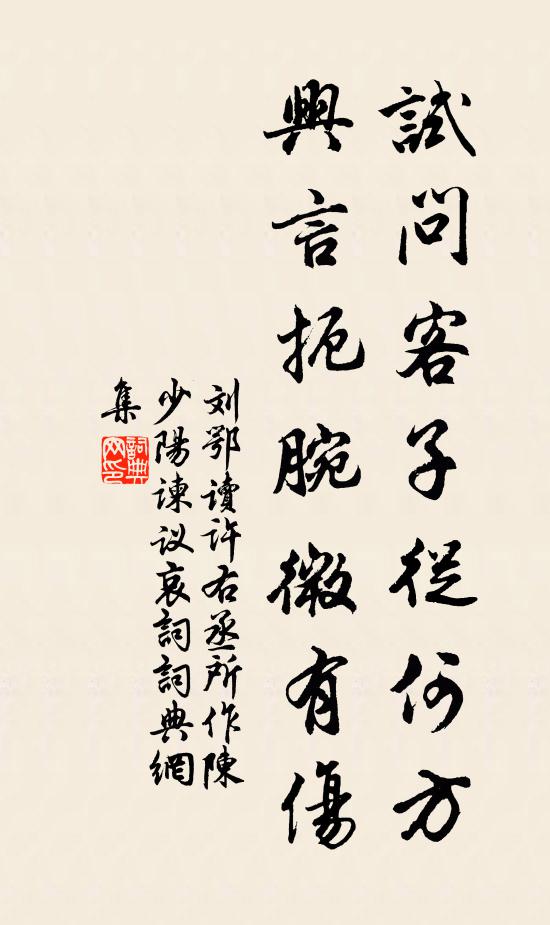 試問客子從何方
興言扼腕微有傷
刘鄂讀許右丞所作陳
少陽諫议哀詞詞典網
集
詞典网印